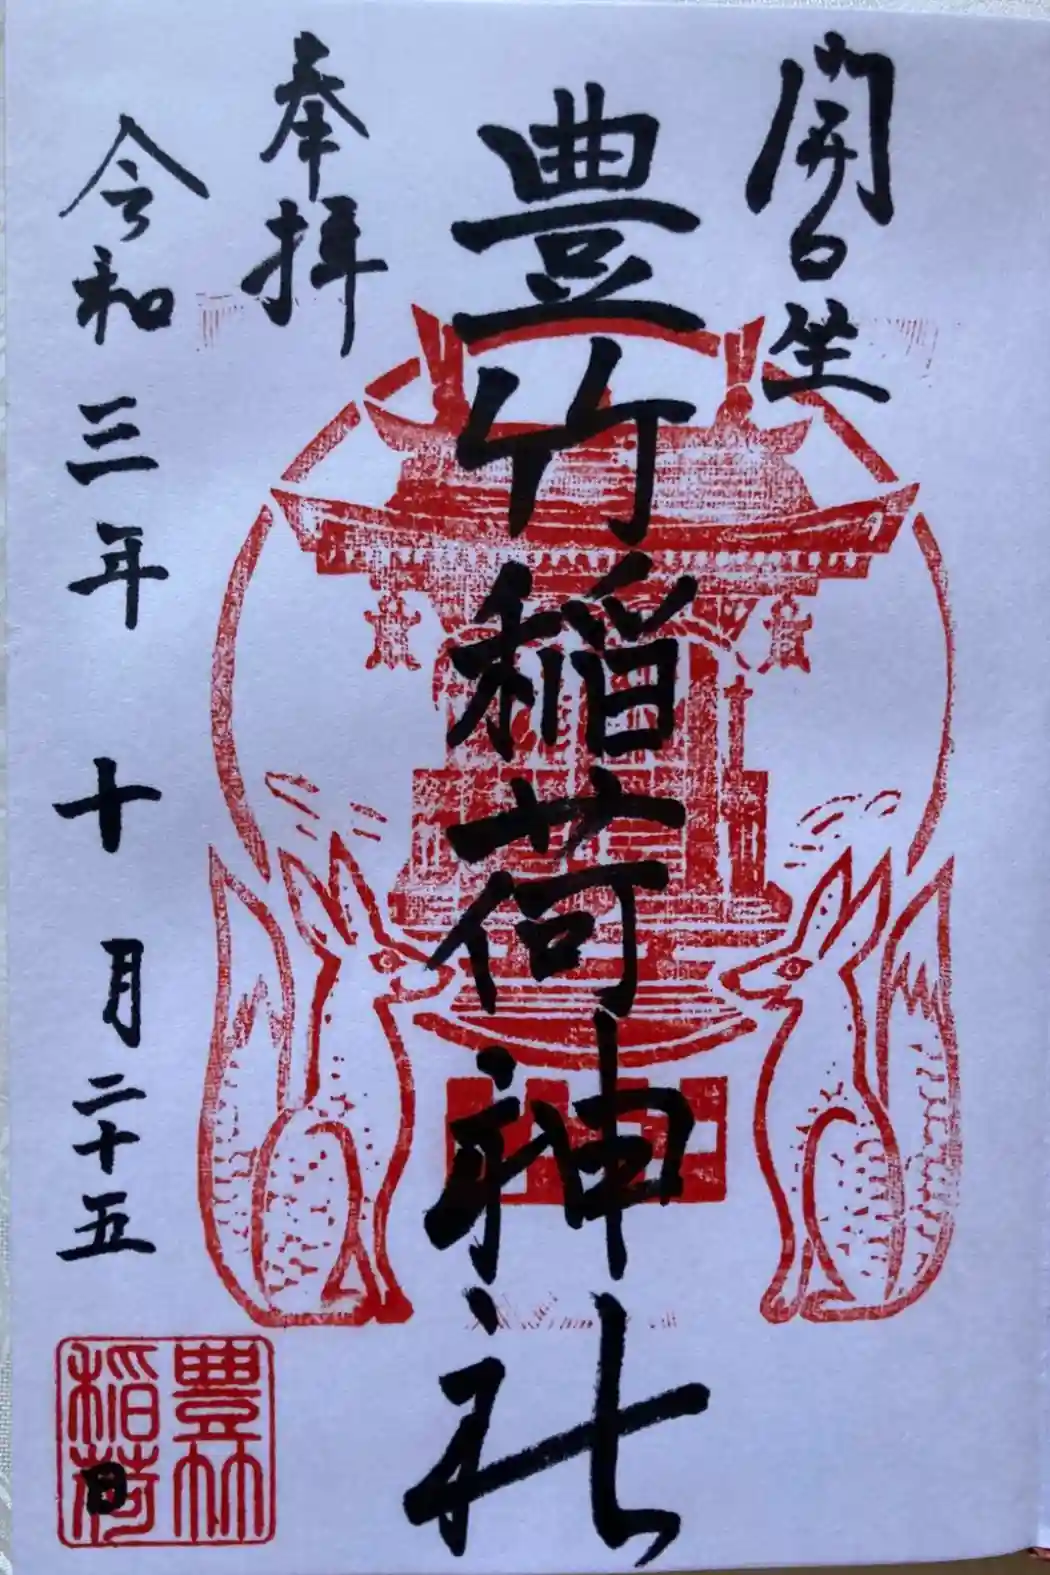 開口坐
豊竹稲荷神社
奉拝
令和三年十月二十五日
豊竹
稲荷